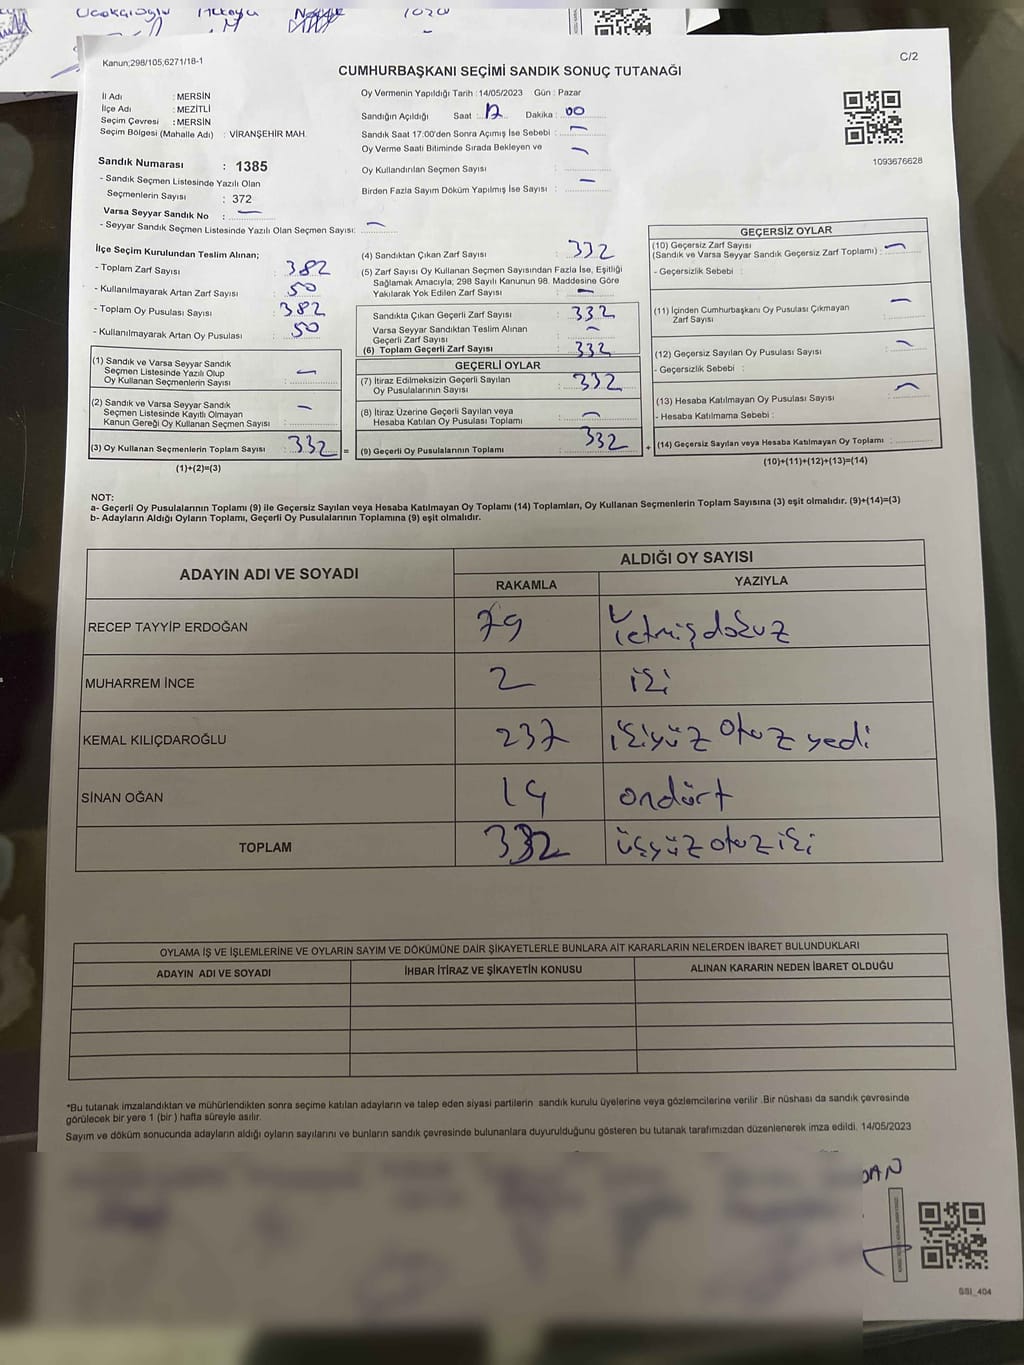 Kanun;298/105,6271/18-1
C/2
CUMHURBAŞKANI SEÇİMİ SANDIK SONUÇ TUTANAĞI
İl Adı : MERSİN
İlçe Adı : MEZİTLİ
Seçim Çevresi : MERSİN
Seçim Bölgesi (Mahalle Adı) : VİRANŞEHİR MAH.
Sandık Numarası : 1385
- Sandık Seçmen Listesinde Yazılı Olan
Seçmenlerin Sayısı : 372
Varsa Seyyar Sandık No : —
- Seyyar Sandık Seçmen Listesinde Yazılı Olan Seçmen Sayısı: —
Oy Vermenin Yapıldığı Tarih : 14/05/2023 Gün : Pazar
Sandığın Açıldığı Saat : Dakika : 00
Sandık Saat 17:00'den Sonra Açımış İse Sebebi : —
Oy Verme Saati Bitiminde Sırada Bekleyen ve —
Oy Kullandırılan Seçmen Sayısı :
Birden Fazla Sayım Döküm Yapılmış İse Sayısı : —
1093676628
İlçe Seçim Kurulundan Teslim Alınan;
- Toplam Zarf Sayısı : 382
- Kullanılmayarak Artan Zarf Sayısı : 50
- Toplam Oy Pusulası Sayısı : 382
- Kullanılmayarak Artan Oy Pusulası : 50
(1) Sandık ve Varsa Seyyar Sandık
Seçmen Listesinde Yazılı Olup
Oy Kullanan Seçmenlerin Sayısı : —
(2) Sandık ve Varsa Seyyar Sandık
Seçmen Listesinde Kayıtlı Olmayan
Kanun Gereği Oy Kullanan Seçmen Sayısı : —
(3) Oy Kullanan Seçmenlerin Toplam Sayısı : 332 =
(1)+(2)=(3)
(4) Sandıktan Çıkan Zarf Sayısı : 332
(5) Zarf Sayısı Oy Kullanan Seçmen Sayısından Fazla İse, Eşitliği
Sağlamak Amacıyla; 298 Sayılı Kanunun 98. Maddesine Göre
Yakılarak Yok Edilen Zarf Sayısı : —
Sandıkta Çıkan Geçerli Zarf Sayısı : 332
Varsa Seyyar Sandıktan Teslim Alınan
Geçerli Zarf Sayısı : —
(6) Toplam Geçerli Zarf Sayısı : 332
GEÇERLİ OYLAR
(7) İtiraz Edilmeksizin Geçerli Sayılan
Oy Pusulalarının Sayısı : 332
(8) İtiraz Üzerine Geçerli Sayılan veya
Hesaba Katılan Oy Pusulası Toplamı : —
(9) Geçerli Oy Pusulalarının Toplamı : 332 +
GEÇERSİZ OYLAR
(10) Geçersiz Zarf Sayısı
(Sandık ve Varsa Seyyar Sandık Geçersiz Zarf Toplamı) : —
- Geçersizlik Sebebi :
(11) İçinden Cumhurbaşkanı Oy Pusulası Çıkmayan
Zarf Sayısı : —
(12) Geçersiz Sayılan Oy Pusulası Sayısı : —
- Geçersizlik Sebebi :
(13) Hesaba Katılmayan Oy Pusulası Sayısı : —
- Hesaba Katılmama Sebebi :
(14) Geçersiz Sayılan veya Hesaba Katılmayan Oy Toplamı :
(10)+(11)+(12)+(13)=(14)
NOT:
a- Geçerli Oy Pusulalarının Toplamı (9) ile Geçersiz Sayılan veya Hesaba Katılmayan Oy Toplamı (14) Toplamları, Oy Kullanan Seçmenlerin Toplam Sayısına (3) eşit olmalıdır. (9)+(14)=(3)
b- Adayların Aldığı Oyların Toplamı, Geçerli Oy Pusulalarının Toplamına (9) eşit olmalıdır.
ADAYIN ADI VE SOYADI
ALDIĞI OY SAYISI
RAKAMLA YAZIYLA
RECEP TAYYİP ERDOĞAN 79 Yetmişdokuz
MUHARREM İNCE 2 iki
KEMAL KILIÇDAROĞLU 237 ikiyüz otuz yedi
SİNAN OĞAN 14 ondört
TOPLAM 332 üçyüz otuz iki
OYLAMA İŞ VE İŞLEMLERİNE VE OYLARIN SAYIM VE DÖKÜMÜNE DAİR ŞİKAYETLERLE BUNLARA AİT KARARLARIN NELERDEN İBARET BULUNDUKLARI
ADAYIN ADI VE SOYADI İHBAR İTİRAZ VE ŞİKAYETİN KONUSU ALINAN KARARIN NEDEN İBARET OLDUĞU
*Bu tutanak imzalandıktan ve mühürlendikten sonra seçime katılan adayların ve talep eden siyasi partilerin sandık kurulu üyelerine veya gözlemcilerine verilir .Bir nüshası da sandık çevresinde
görülecek bir yere 1 (bir ) hafta süreyle asılır.
Sayım ve döküm sonucunda adayların aldığı oyların sayılarını ve bunların sandık çevresinde bulunanlara duyurulduğunu gösteren bu tutanak tarafımızdan düzenlenerek imza edildi. 14/05/2023
SSI_404